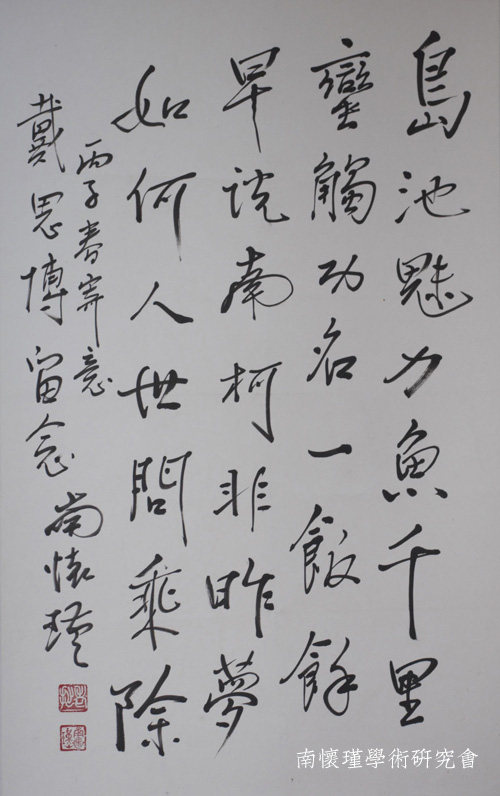 島池魅力魚千里
蠻觸功名一飯餘
早說南柯非昨夢
如何人世問乘除
丙子春寄意
戴思博留念 南懷瑾
南懷瑾學術研究會